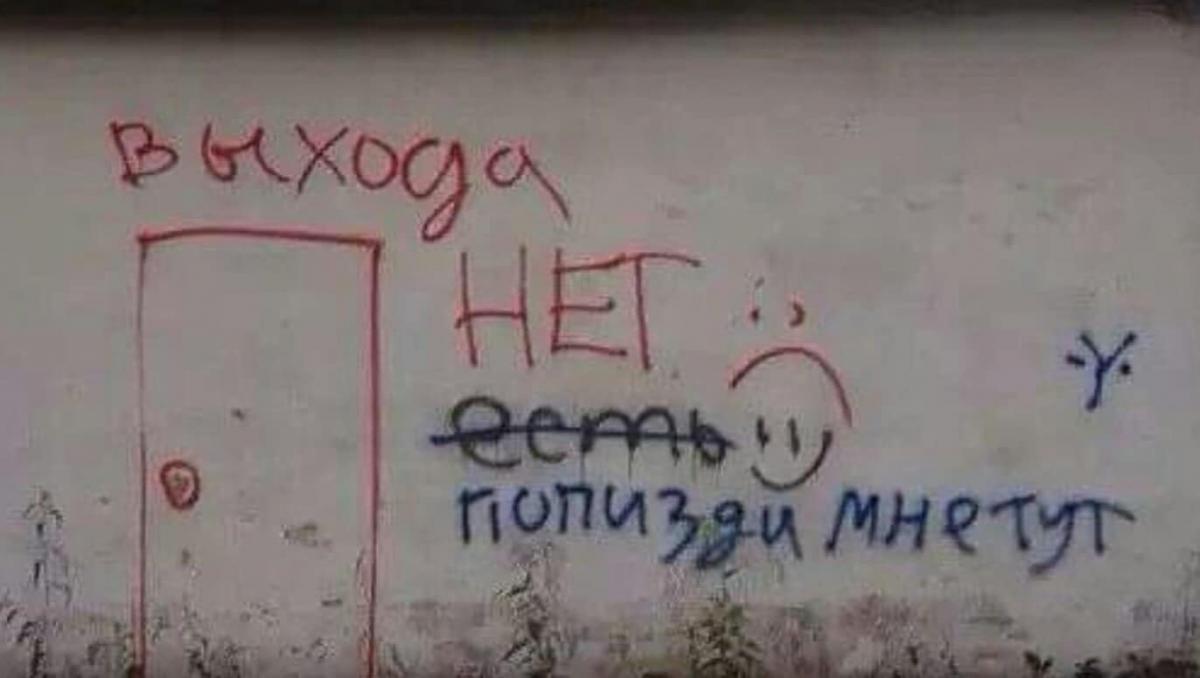 выхода
НЕТ :(
есть :)
попизди мне тут